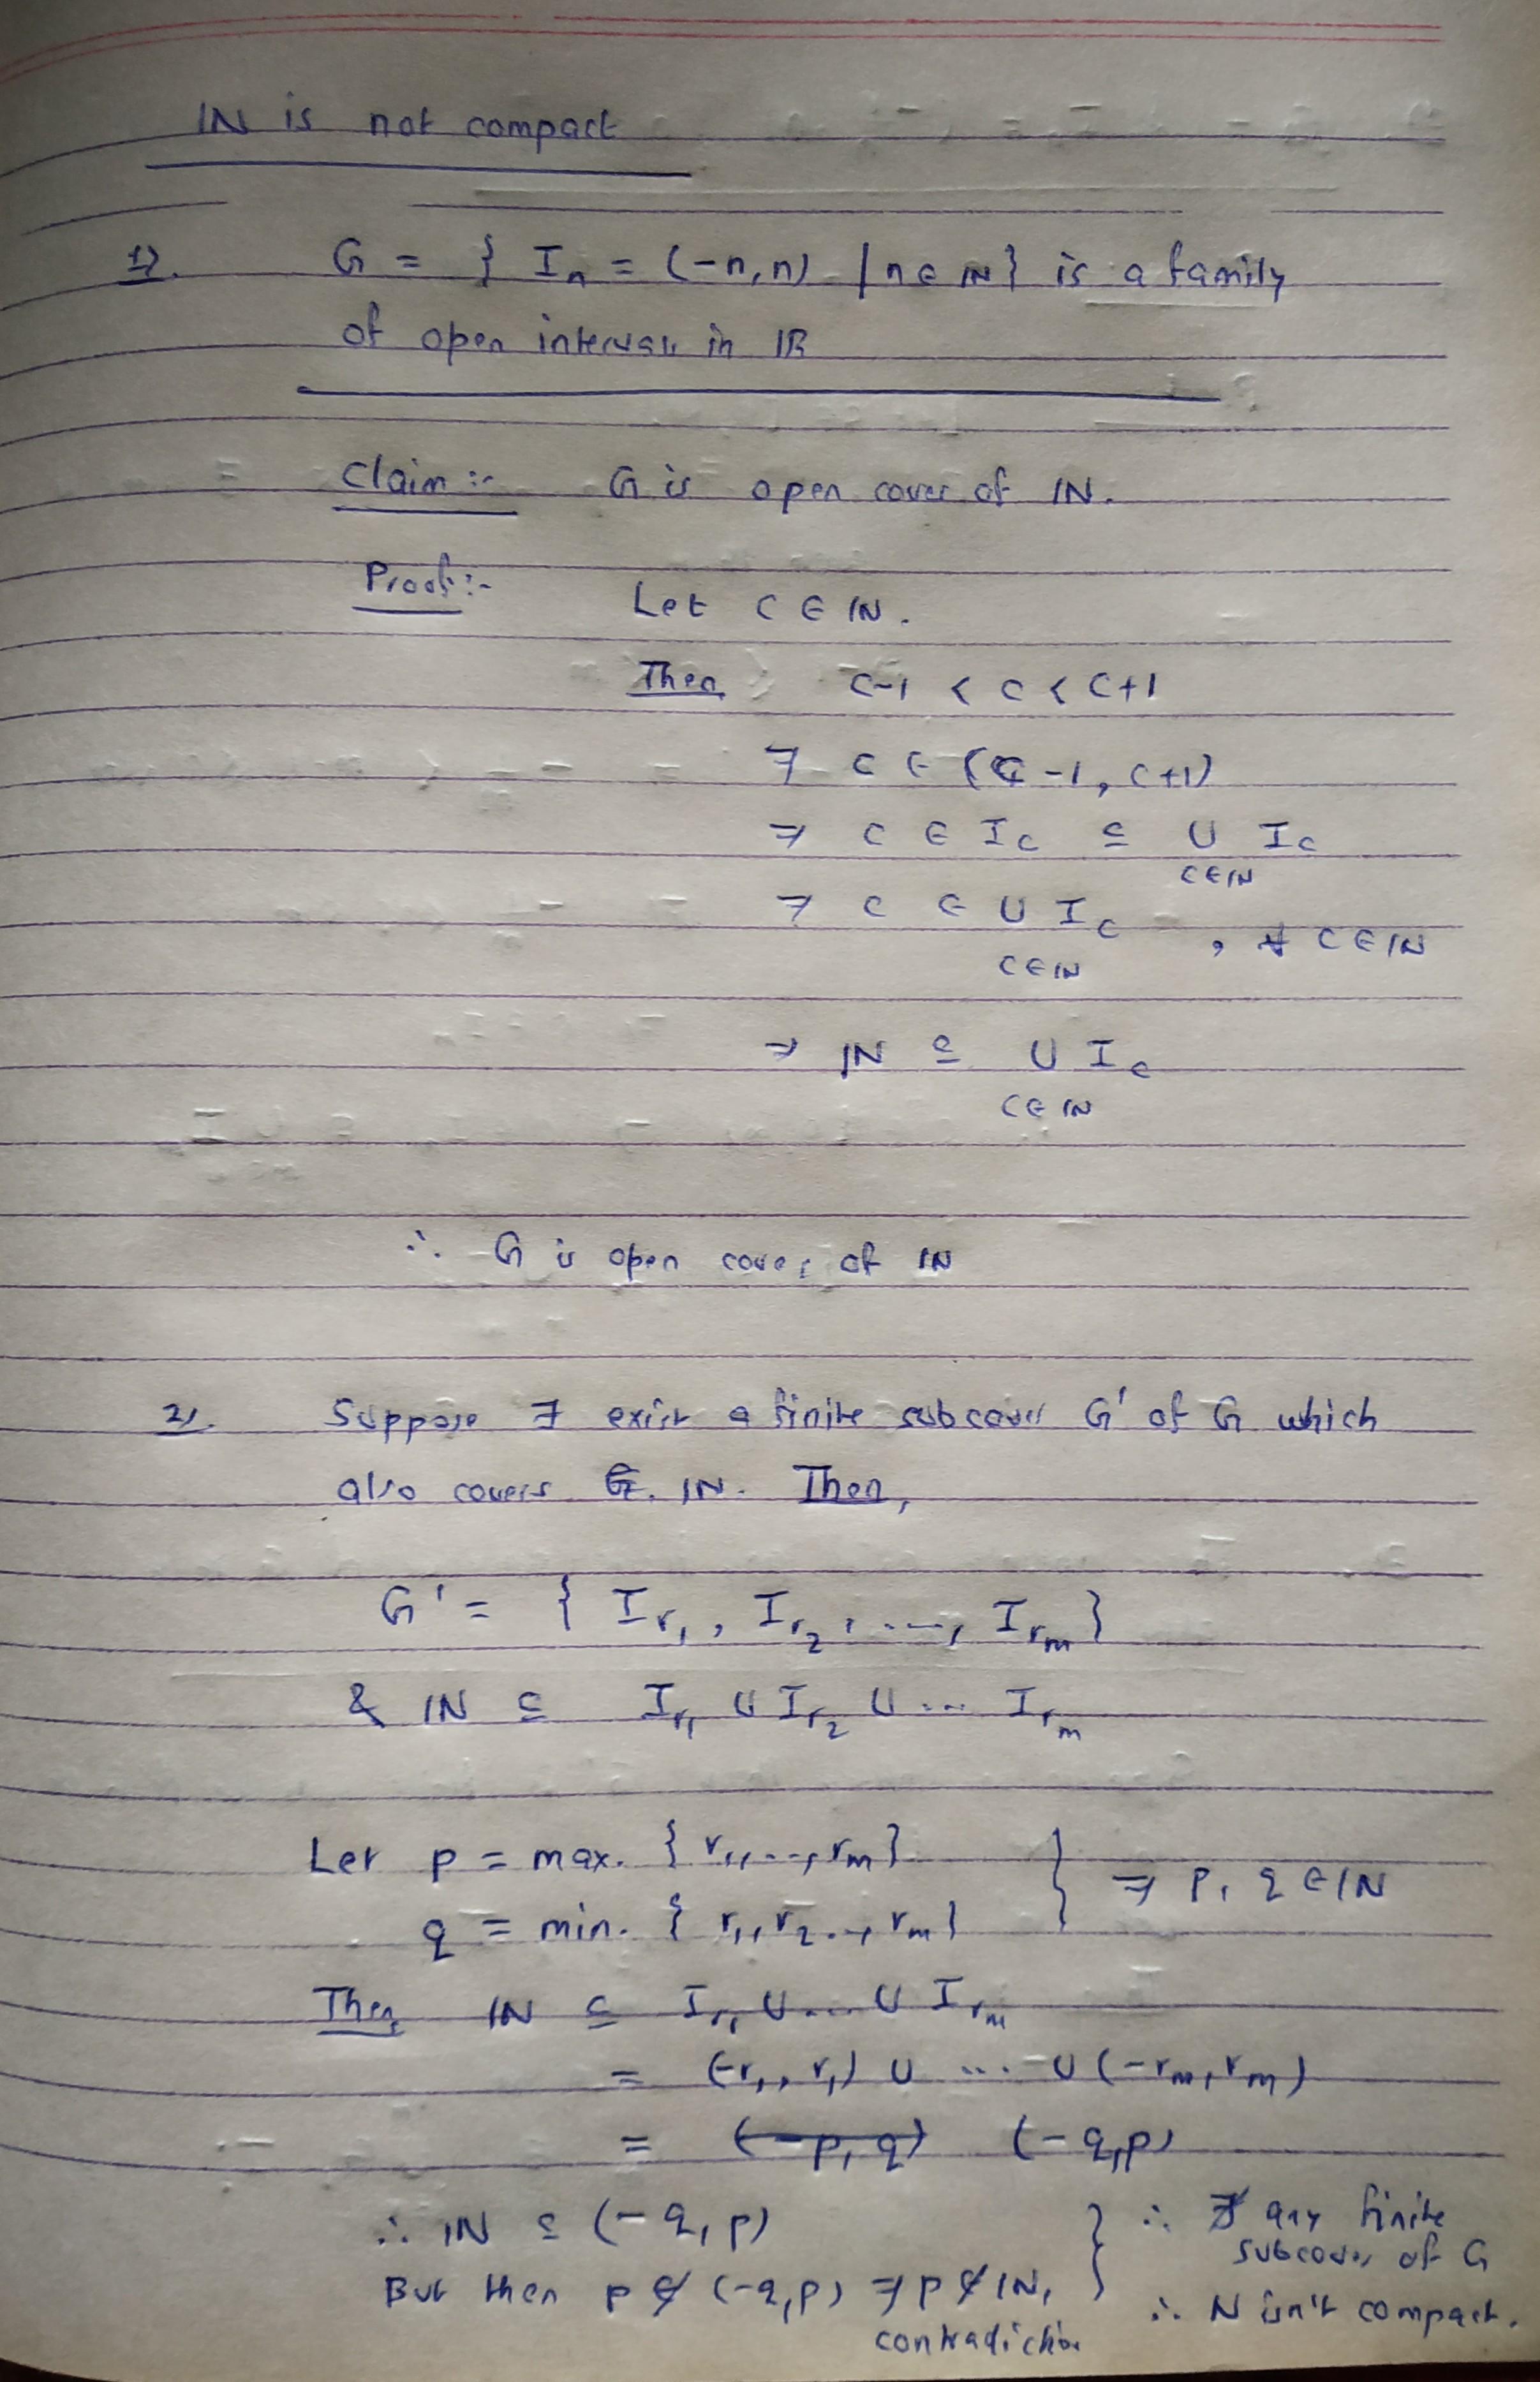 IN is not compact
1). G = { In = (-n, n) | n ∈ IN } is a family
of open intervals in IR
Claim :- G is open cover of IN.
Proof :- Let c ∈ IN.
Then c-1 < c < c+1
⇒ c ∈ (c-1, c+1)
⇒ c ∈ Ic ⊆ ∪ Ic
c∈IN
⇒ c ∈ ∪ Ic , ∀ c ∈ IN
c∈IN
⇒ IN ⊆ ∪ Ic
c∈IN
∴ G is open cover of IN
2). Suppose ∃ exist a finite subcover G' of G which
also covers IN. Then,
G' = { Ir1, Ir2, ..., Irm }
& IN ⊆ Ir1 ∪ Ir2 ∪ ... Irm
Let p = max. { r1, ..., rm }
q = min. { r1, r2 .., rm } } ⇒ p, q ∈ IN
Then, IN ⊆ Ir1 ∪ ... ∪ Irm
= (-r1, r1) ∪ ... ∪ (-rm, rm)
= (-p, q) (-q, p)
∴ IN ⊆ (-q, p)
But then p ∉ (-q, p) ⇒ p ∉ IN,
contradiction
∴ ∄ any finite
subcover of G
∴ N isn't compact.